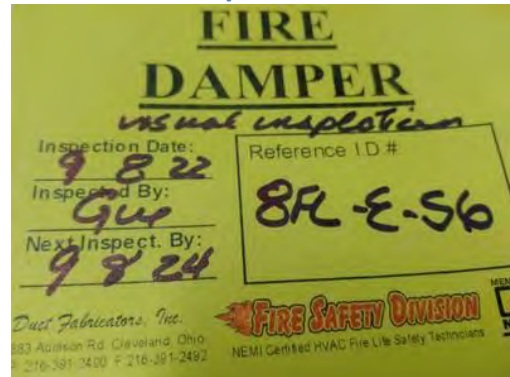 FIRE
DAMPER
visual inspection
Inspection Date:
9 8 22
Inspected By:
Gus
Next Inspect. By:
9 8 24
Reference I.D #
8FL-E-56
Duct Fabricators, Inc.
883 Addison Rd. Cleveland, Ohio
P 216-391-2400 F 216-391-2492
FIRE SAFETY DIVISION
NEMI Certified HVAC Fire Life Safety Technicians